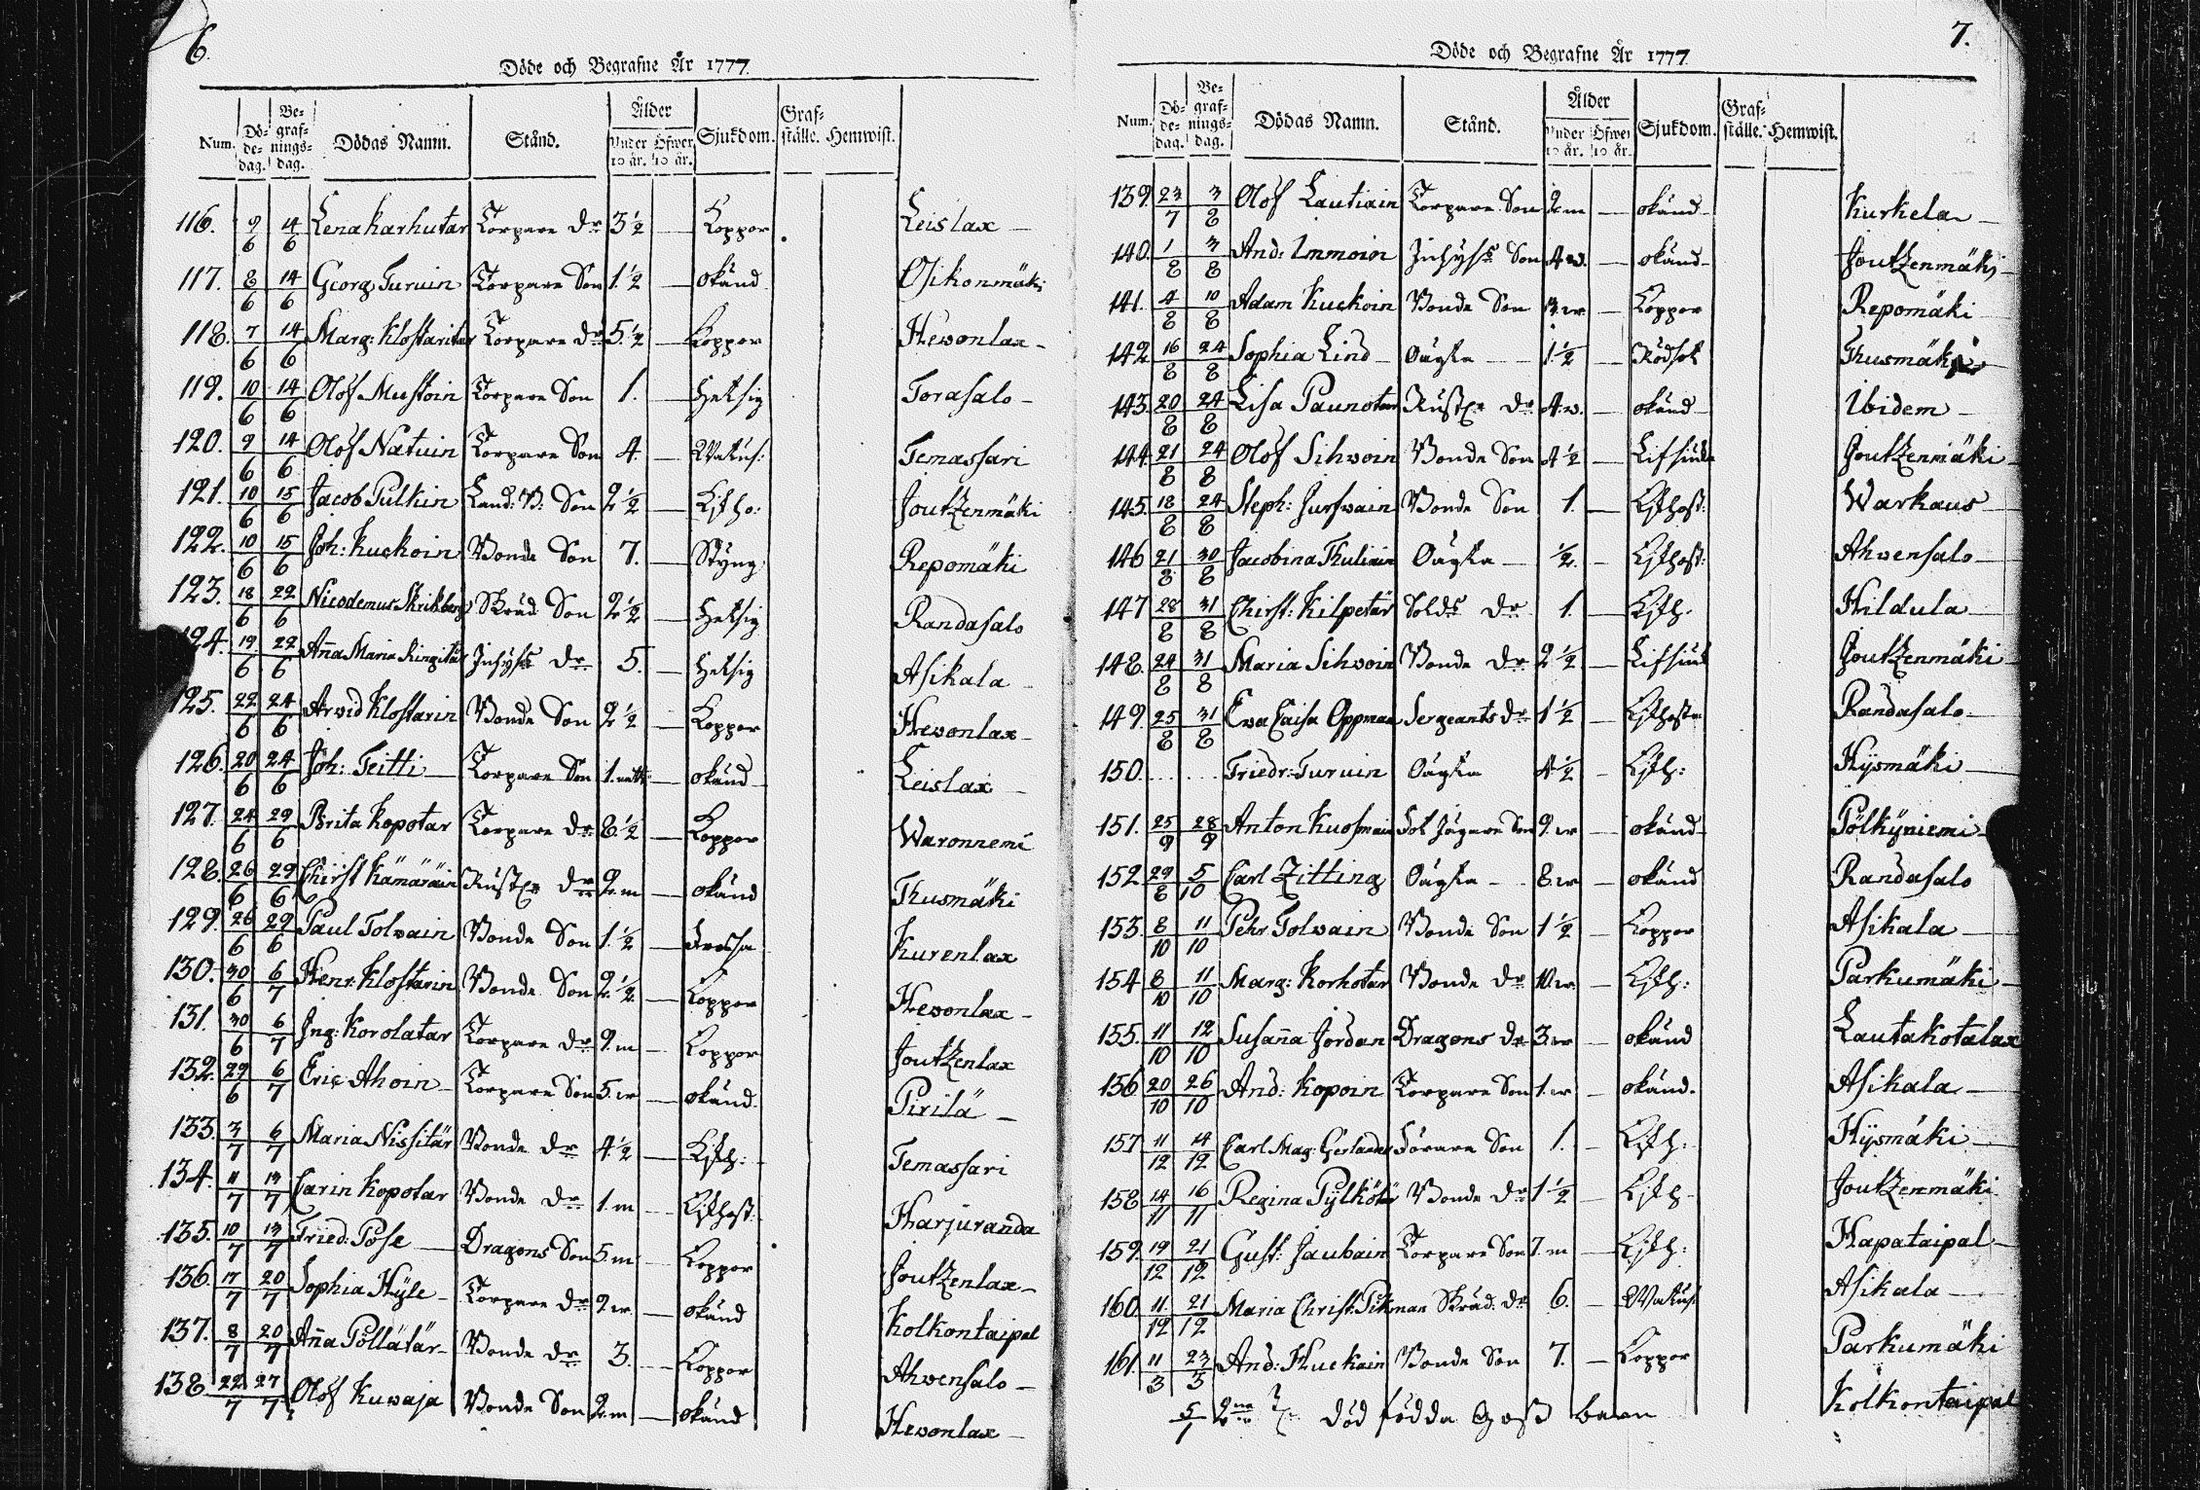 6.
Döde och Begrafne År 1777.
Num. Dö-de-dag. Be-graf-nings-dag. Dödas Namn. Stånd. Ålder Under 10 år. Öfwer 10 år. Sjukdom. Graf-ställe. Hemwist.
116. 9/6 14/6 Lena Karhutar Torpare dr 3 1/2 — Koppor Leislax —
117. 8/6 14/6 Georg Turuin Torpare Son 1 1/2 — okänd Osikonmäki
118. 7/6 14/6 Marg: Klostaritar Torpare dr 5 1/2 — Koppor Hevonlax —
119. 10/6 14/6 Olof Mustoin Torpare Son 1. — Hetsig Torasalo —
120. 9/6 14/6 Olof Natuin Torpare Son 4. — Temassari
121. 10/6 15/6 Jacob Pulkin Land: B: Son 2 1/2 — Joutzenmäki
122. 10/6 15/6 Joh: Kuckoin Bonde Son 7. — Styng Repomäki
123. 18/6 22/6 Nicodemus Skrikberg Skräd Son 2 1/2 — Hetsig Randasalo
124. 19/6 22/6 Anna Maria Ringitär Inhyss dr 5. — Hetsig Asikala —
125. 22/6 24/6 Arvid Klostarin Bonde Son 2 1/2 — Koppor Hevonlax —
126. 20/6 24/6 Joh: Teitti — Torpare Son 1. — okänd Leislax —
127. 24/6 29/6 Brita Kopotar Torpare dr 8 1/2 — Koppor Waronnemi
128. 26/6 29/6 Christ Kämäräin dr 2. m — okänd Thusmäki
129. 26/6 29/6 Paul Tolvain Bonde Son 1 1/2 — Frossa Kurenlax
130. 30/6 6/7 Henr: Klostarin Bonde Son 2 1/2 — Koppor Hevonlax —
131. 30/6 6/7 Ing: Korolatar Torpare dr 9. m — Koppor Joutzenlax
132. 29/6 6/7 Eric Ahoin — Torpare Son 5. w — okänd Pirilä —
133. 3/7 6/7 Maria Nissitär Bonde dr 4 1/2 — Kikh: Temassari
134. 11/7 13/7 Carin Kopotar Bonde dr 1. m — Kikhost Harjuranda
135. 10/7 13/7 Fried: Pose — Dragons Son 5. m — Koppor Joutzenlax —
136. 17/7 20/7 Sophia Hyle — Torpare dr 2. w — okänd Kolkontaipal
137. 8/7 20/7 Anna Pöllätär — Bonde dr 3. — Koppor Ahvensalo —
138. 22/7 27/7 Olof Kuvaja Bonde Son 2. m — okänd Hevonlax —
7.
Döde och Begrafne År 1777
Num. Dö-de-dag. Be-graf-nings-dag. Dödas Namn. Stånd. Ålder Under 10 år. Öfwer 10 år. Sjukdom. Graf-ställe. Hemwist.
139. 23/7 3/8 Olof Lautiain Torpare Son 2. m — okänd — Kurkela —
140. 1/8 3/8 And: Immoin Inhyss Son 4 w. — okänd — Joutzenmäki —
141. 4/8 10/8 Adam Kuckoin Bonde Son 3. w — Koppor Repomäki
142. 16/8 24/8 Sophia Lind — Oägta — 1 1/2 — Rödsot Thusmäki
143. 20/8 24/8 Lisa Paunotar dr 4. w. — okänd — Ibidem —
144. 21/8 24/8 Olof Sihvoin Bonde Son 4 1/2 — Joutzenmäki —
145. 18/8 24/8 Steph: Hurswain Bonde Son 1. — Kikhost: Warkaus —
146 21/8 30/8 Jacobina Thuliain Oägta — 1/2. — Kikhost: Ahvensalo —
147 28/8 31/8 Christ: Kilpetär Solds dr 1. — Kikh. Hildula —
148. 24/8 31/8 Maria Sihvoin Bonde dr 2 1/2 — Joutzenmäki —
149. 25/8 31/8 Eva Caisa Oppman Sergeants dr 1 1/2 — Kikhosta Randasalo —
150. .... .... Friedr: Turuin Oägta 4 1/2 — Kikh: Hysmäki —
151. 25/9 28/9 Anton Kuosmain Jägare Son 9. w — okänd — Pölkyniemi —
152. 29/8 5/10 Carl Zitting Oägta — 8. w — okänd Randasalo
153. 8/10 11/10 Pehr Tolvain Bonde Son 1 1/2 — Koppor Asikala —
154 8/10 11/10 Marg: Korhotar Bonde dr 10. w — Kikh: Parkumäki —
155. 11/10 12/10 Susanna Jordan Dragons dr 3. w — okänd Lautakotalax
156 20/10 26/10 And: Kopoin Torpare Son 1. w — okänd. Asikala —
157 11/12 14/12 Carl Mag: Gerlander Förare Son 1. — Kikh: Hysmäki —
158 14/11 16/11 Regina Pylkötär Bonde dr 1 1/2 — Kikh — Joutzenmäki
159. 19/12 21/12 Gust: Jaubain Torpare Son 7. m — Kikh: Hapataipal —
160. 11/12 21/12 Maria Christ: Pikman Skräd. dr 6. — Asikala —
161 11/3 23/3 And: Huckain Bonde Son 7. — Koppor Parkumäki
5/7 2ne död födda Goss barn Kolkontaipal